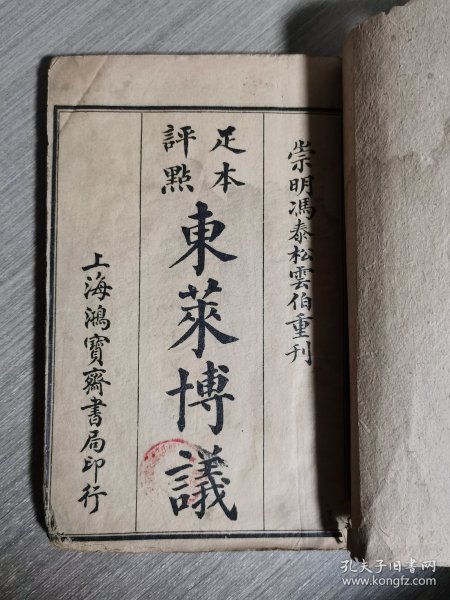 崇明馮泰松雲伯重刊
足本
評點
東萊博議
上海鴻寶齋書局印行
孔夫子旧书网
www.kongfz.com